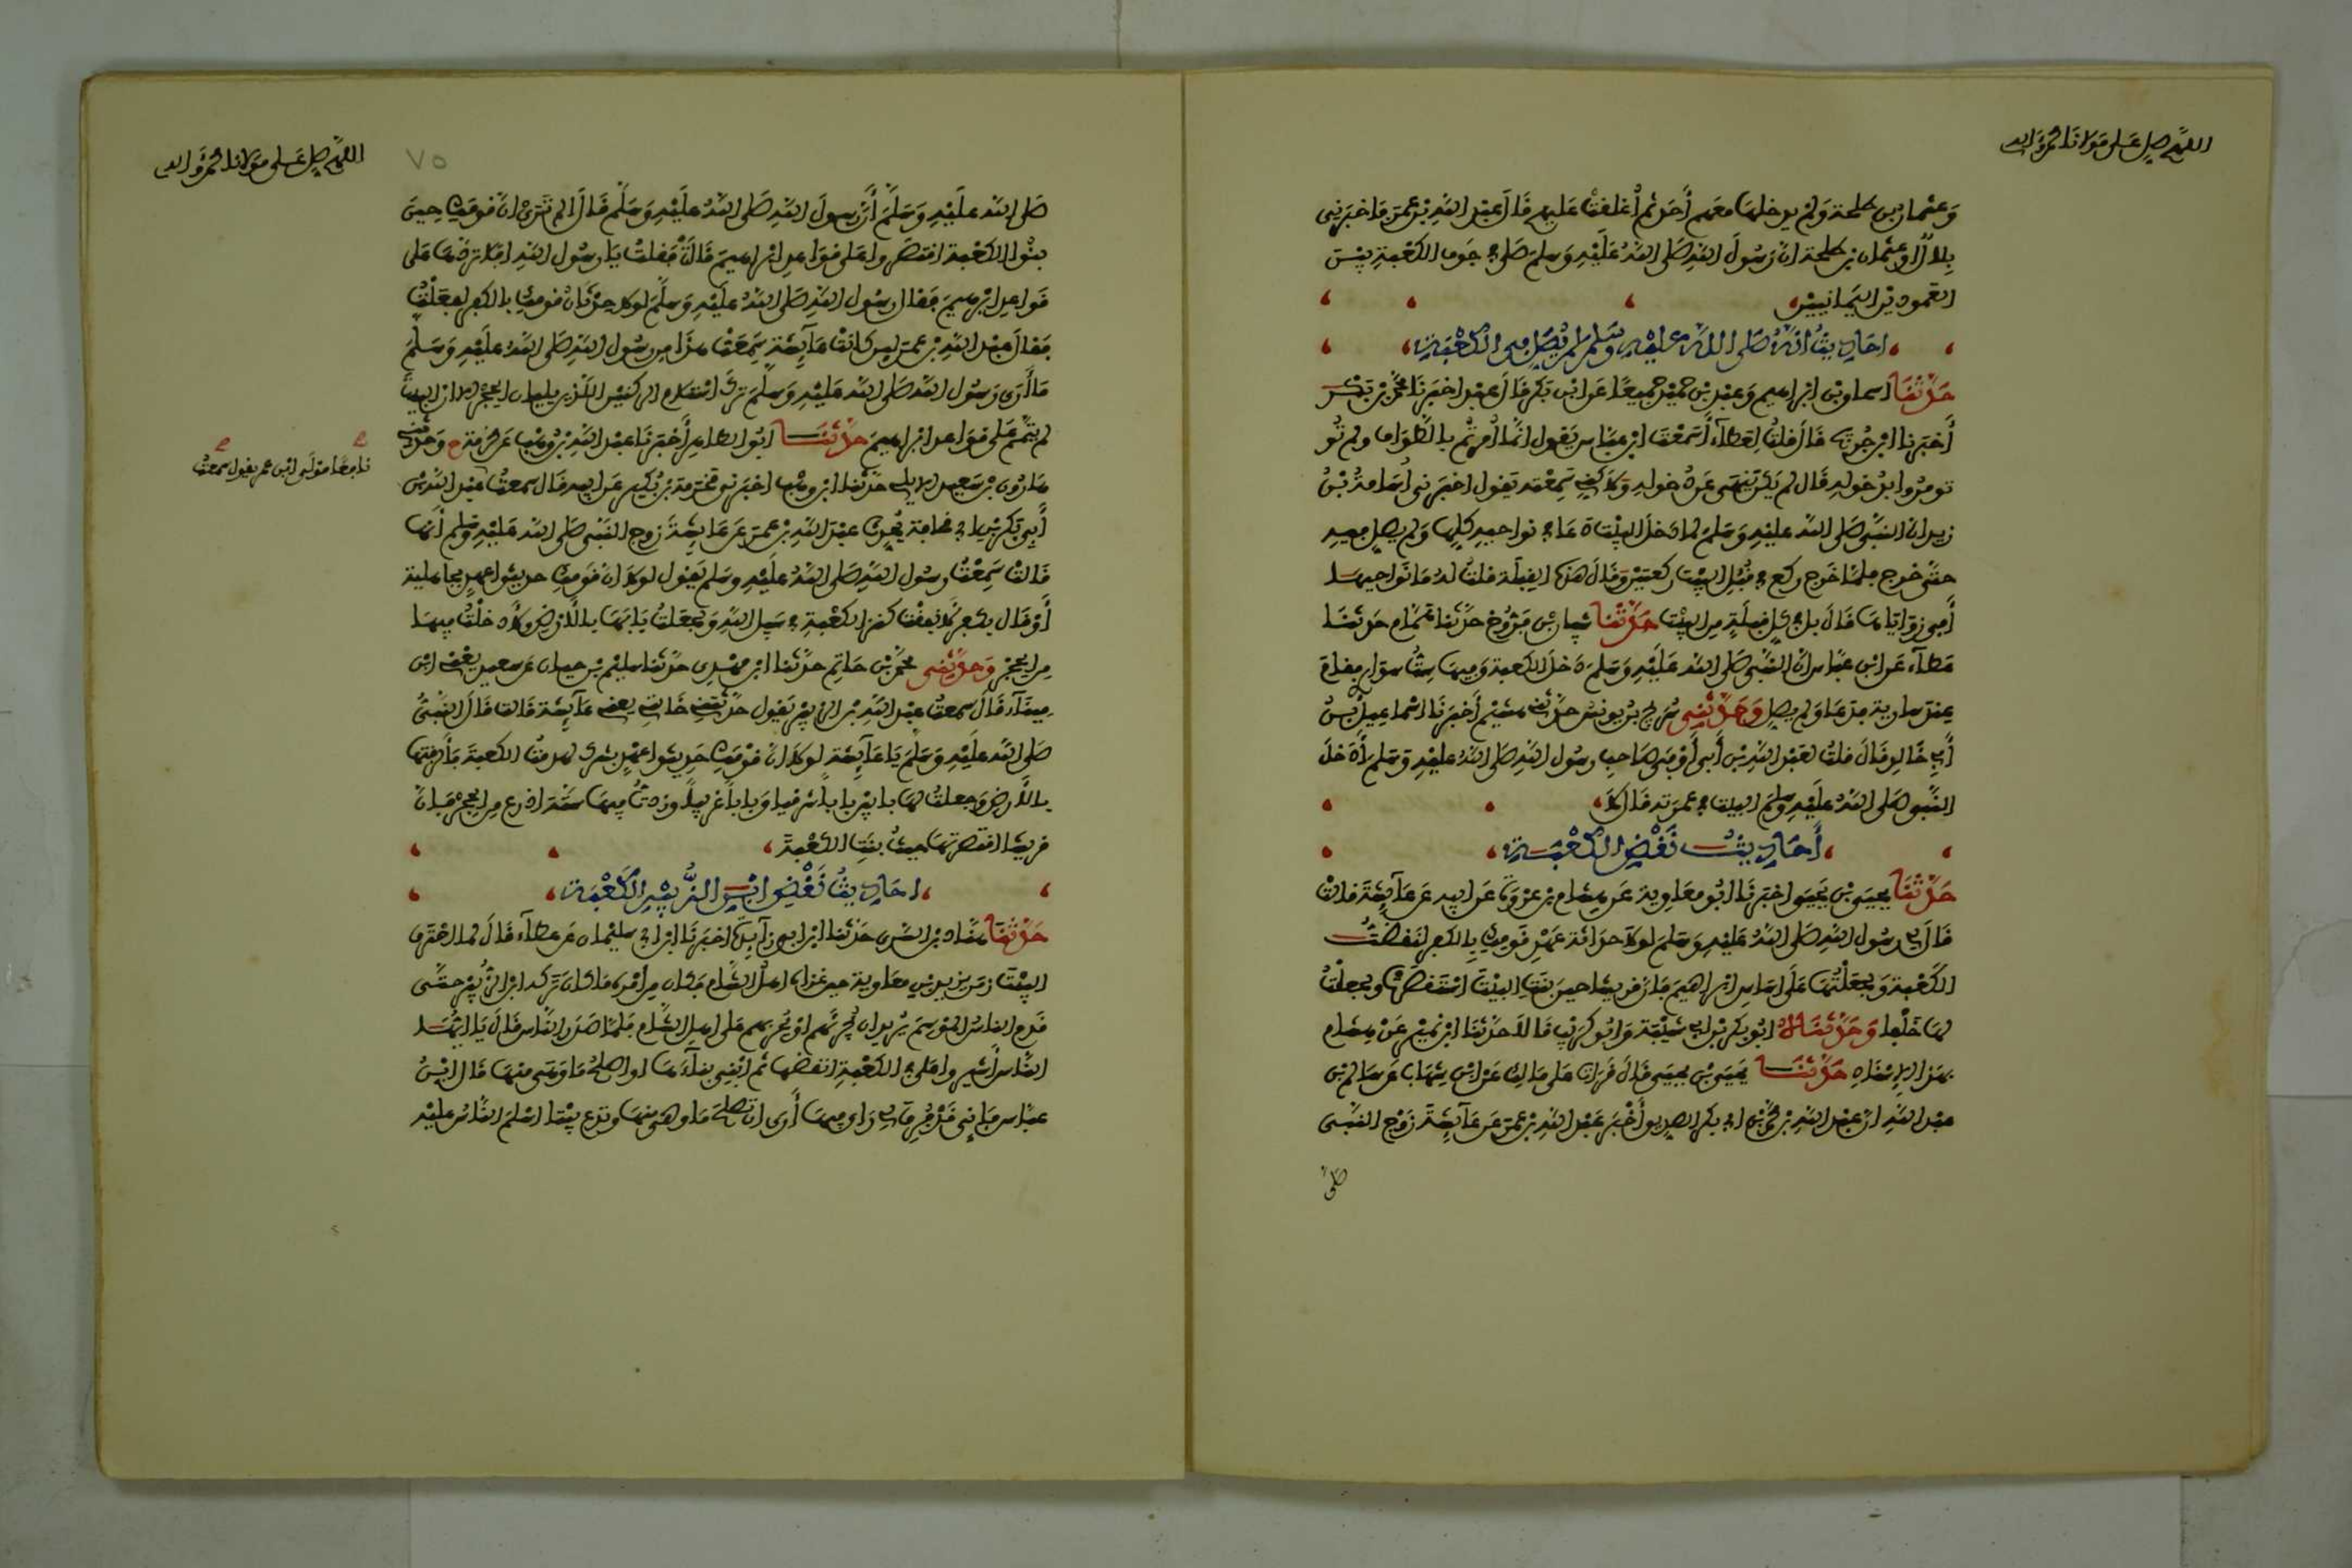 اللهم صل على مولانا محمد وءاله
وعثمان بن طلحة ولم يدخلها معهم أحد ثم أغلقت عليهم قال عبد الله بن عمر فاخبرنى
بلال او عثمان بن طلحة ان رسول الله صلى الله عليه وسلم صلى في جوف الكعبة بين
العمودين اليمانيين
احاديث انه صلى الله عليه وسلم لم يصل في الكعبة
حدثنا اسحاق بن ابراهيم وعبد بن حميد جميعا عن ابن بكر قال عبد اخبرنا محمد بن بكر
أخبرنا ابن جريج قال قلت لعطاء أسمعت ابن عباس يقول انما أمرتم بالطواف ولم تو
تومروا بدخوله قال لم يكن ينهى عن دخوله ولاكني سمعته يقول اخبرنى أسامة بن
زيد ان النبي صلى الله عليه وسلم لما دخل البيت دعا في نواحيه كلها ولم يصل فيه
حتى خرج فلما خرج ركع في قبل البيت ركعتين وقال هذه القبلة قلت له ما نواحيها
أفي زواياها قال بل في كل قبلة من البيت حدثنا شيبان بن فروخ حدثنا همام حدثنا
عطاء عن ابن عباس ان النبي صلى الله عليه وسلم دخل الكعبة وفيها ست سوار فقام
عند سارية فدعا ولم يصل وحدثني سريج بن يونس حدثني هشيم أخبرنا اسماعيل بن
أبي خالد قال قلت لعبد الله بن أبي أوفى صاحب رسول الله صلى الله عليه وسلم أدخل
النبي صلى الله عليه وسلم البيت في عمرته قال لا
أحاديث نقض الكعبة
حدثنا يحيى بن يحيى اخبرنا أبو معاوية عن هشام بن عروة عن ابيه عن عائشة قالت
قال لي رسول الله صلى الله عليه وسلم لولا حداثة عهد قومك بالكفر لنقضت
الكعبة ولجعلتها على اساس ابراهيم فان قريشا حين بنت البيت استقصرت ولجعلت
لها خلفا وحدثناه ابو بكر بن ابي شيبة وابو كريب قالا حدثنا ابن نمير عن هشام
بهذا الإسناد حدثنا يحيى بن يحيى قال قرات على مالك عن ابن شهاب عن سالم بن
عبد الله ان عبد الله بن محمد بن ابي بكر الصديق أخبر عبد الله بن عمر عن عائشة زوج النبي
صلى
اللهم صل على مولانا محمد وءاله
٧٥
صلى الله عليه وسلم أن رسول الله صلى الله عليه وسلم قال الم تري ان قومك حين
بنوا الكعبة اقتصروا على قواعد ابراهيم قالت فقلت يا رسول الله افلا تردها على
قواعد ابرهيم فقال رسول الله صلى الله عليه وسلم لولا حدثان قومك بالكفر لفعلت
فقال عبد الله بن عمر ليس كانت عائشة سمعت هذا من رسول الله صلى الله عليه وسلم
ما أرى رسول الله صلى الله عليه وسلم ترك استلام الركنين اللذين يليان الحجر إلا ان البيت
لم يتمم على قواعد ابراهيم حدثنا ابو الطاهر أخبرنا عبد الله بن وهب عن مخرمة ح وحدثني
هارون بن سعيد الايلي حدثنا ابن وهب اخبرني مخرمة بن بكير عن ابيه قال سمعت عبد الله بن
نافعا مولى ابن عمر يقول سمعت
أبي بكر بن ابي قحافة يحدث عبد الله بن عمر عن عائشة زوج النبي صلى الله عليه وسلم أنها
قالت سمعت رسول الله صلى الله عليه وسلم يقول لولا ان قومك حديثوا عهد بجاهلية
أو قال بكفر لانفقت كنز الكعبة في سبيل الله ولجعلت بابها بالارض ولأدخلت فيها
من الحجر وحدثني محمد بن حاتم حدثنا ابن مهدي حدثنا سليم بن حيان عن سعيد يعني ابن
ميناء قال سمعت عبد الله بن الزبير يقول حدثتني خالتي يعني عائشة قالت قال النبي
صلى الله عليه وسلم يا عائشة لولا ان قومك حديثوا عهد بشرك لهدمت الكعبة فألزقتها
بالأرض وجعلت لها بابين بابا شرقيا وبابا غربيا وزدت فيها ستة اذرع من الحجر فان
قريشا اقتصرتها حيث بنت الكعبة
احاديث نقض ابن الزبير الكعبة
حدثنا هناد بن السري حدثنا ابن ابي زائدة اخبرنا ابن ابي سليمان عن عطاء قال لما احترق
البيت زمن يزيد بن معاوية حين غزاه اهل الشام فكان من أمره ما كان تركه ابن الزبير حتى
قدم الناس الموسم يريد ان يجرئهم او يحربهم على اهل الشام فلما صدر الناس قال يا ايها
الناس أشيروا على في الكعبة انقضها ثم ابني بناءها او اصلح ما وهى منها قال ابن
عباس فإني قد فرق لي راي فيها أرى ان تصلح ما وهى منها وتدع بيتا اسلم الناس عليه